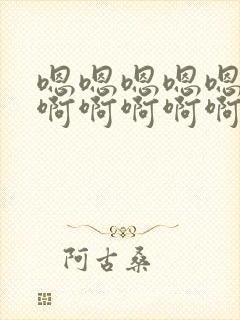 嗯嗯嗯嗯嗯
啊啊啊啊啊
阿古桑